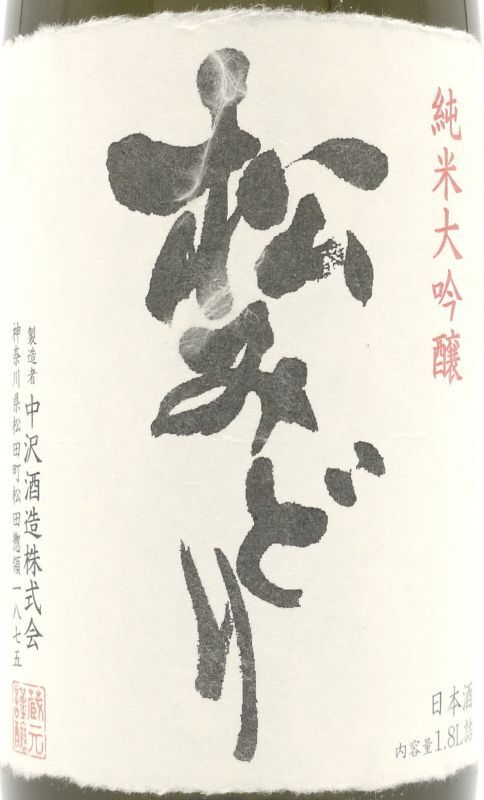 純米大吟醸
松みどり
製造者 中沢酒造株式会
神奈川県松田町松田惣領一八七五
蔵元
日本酒
内容量1.8L詰